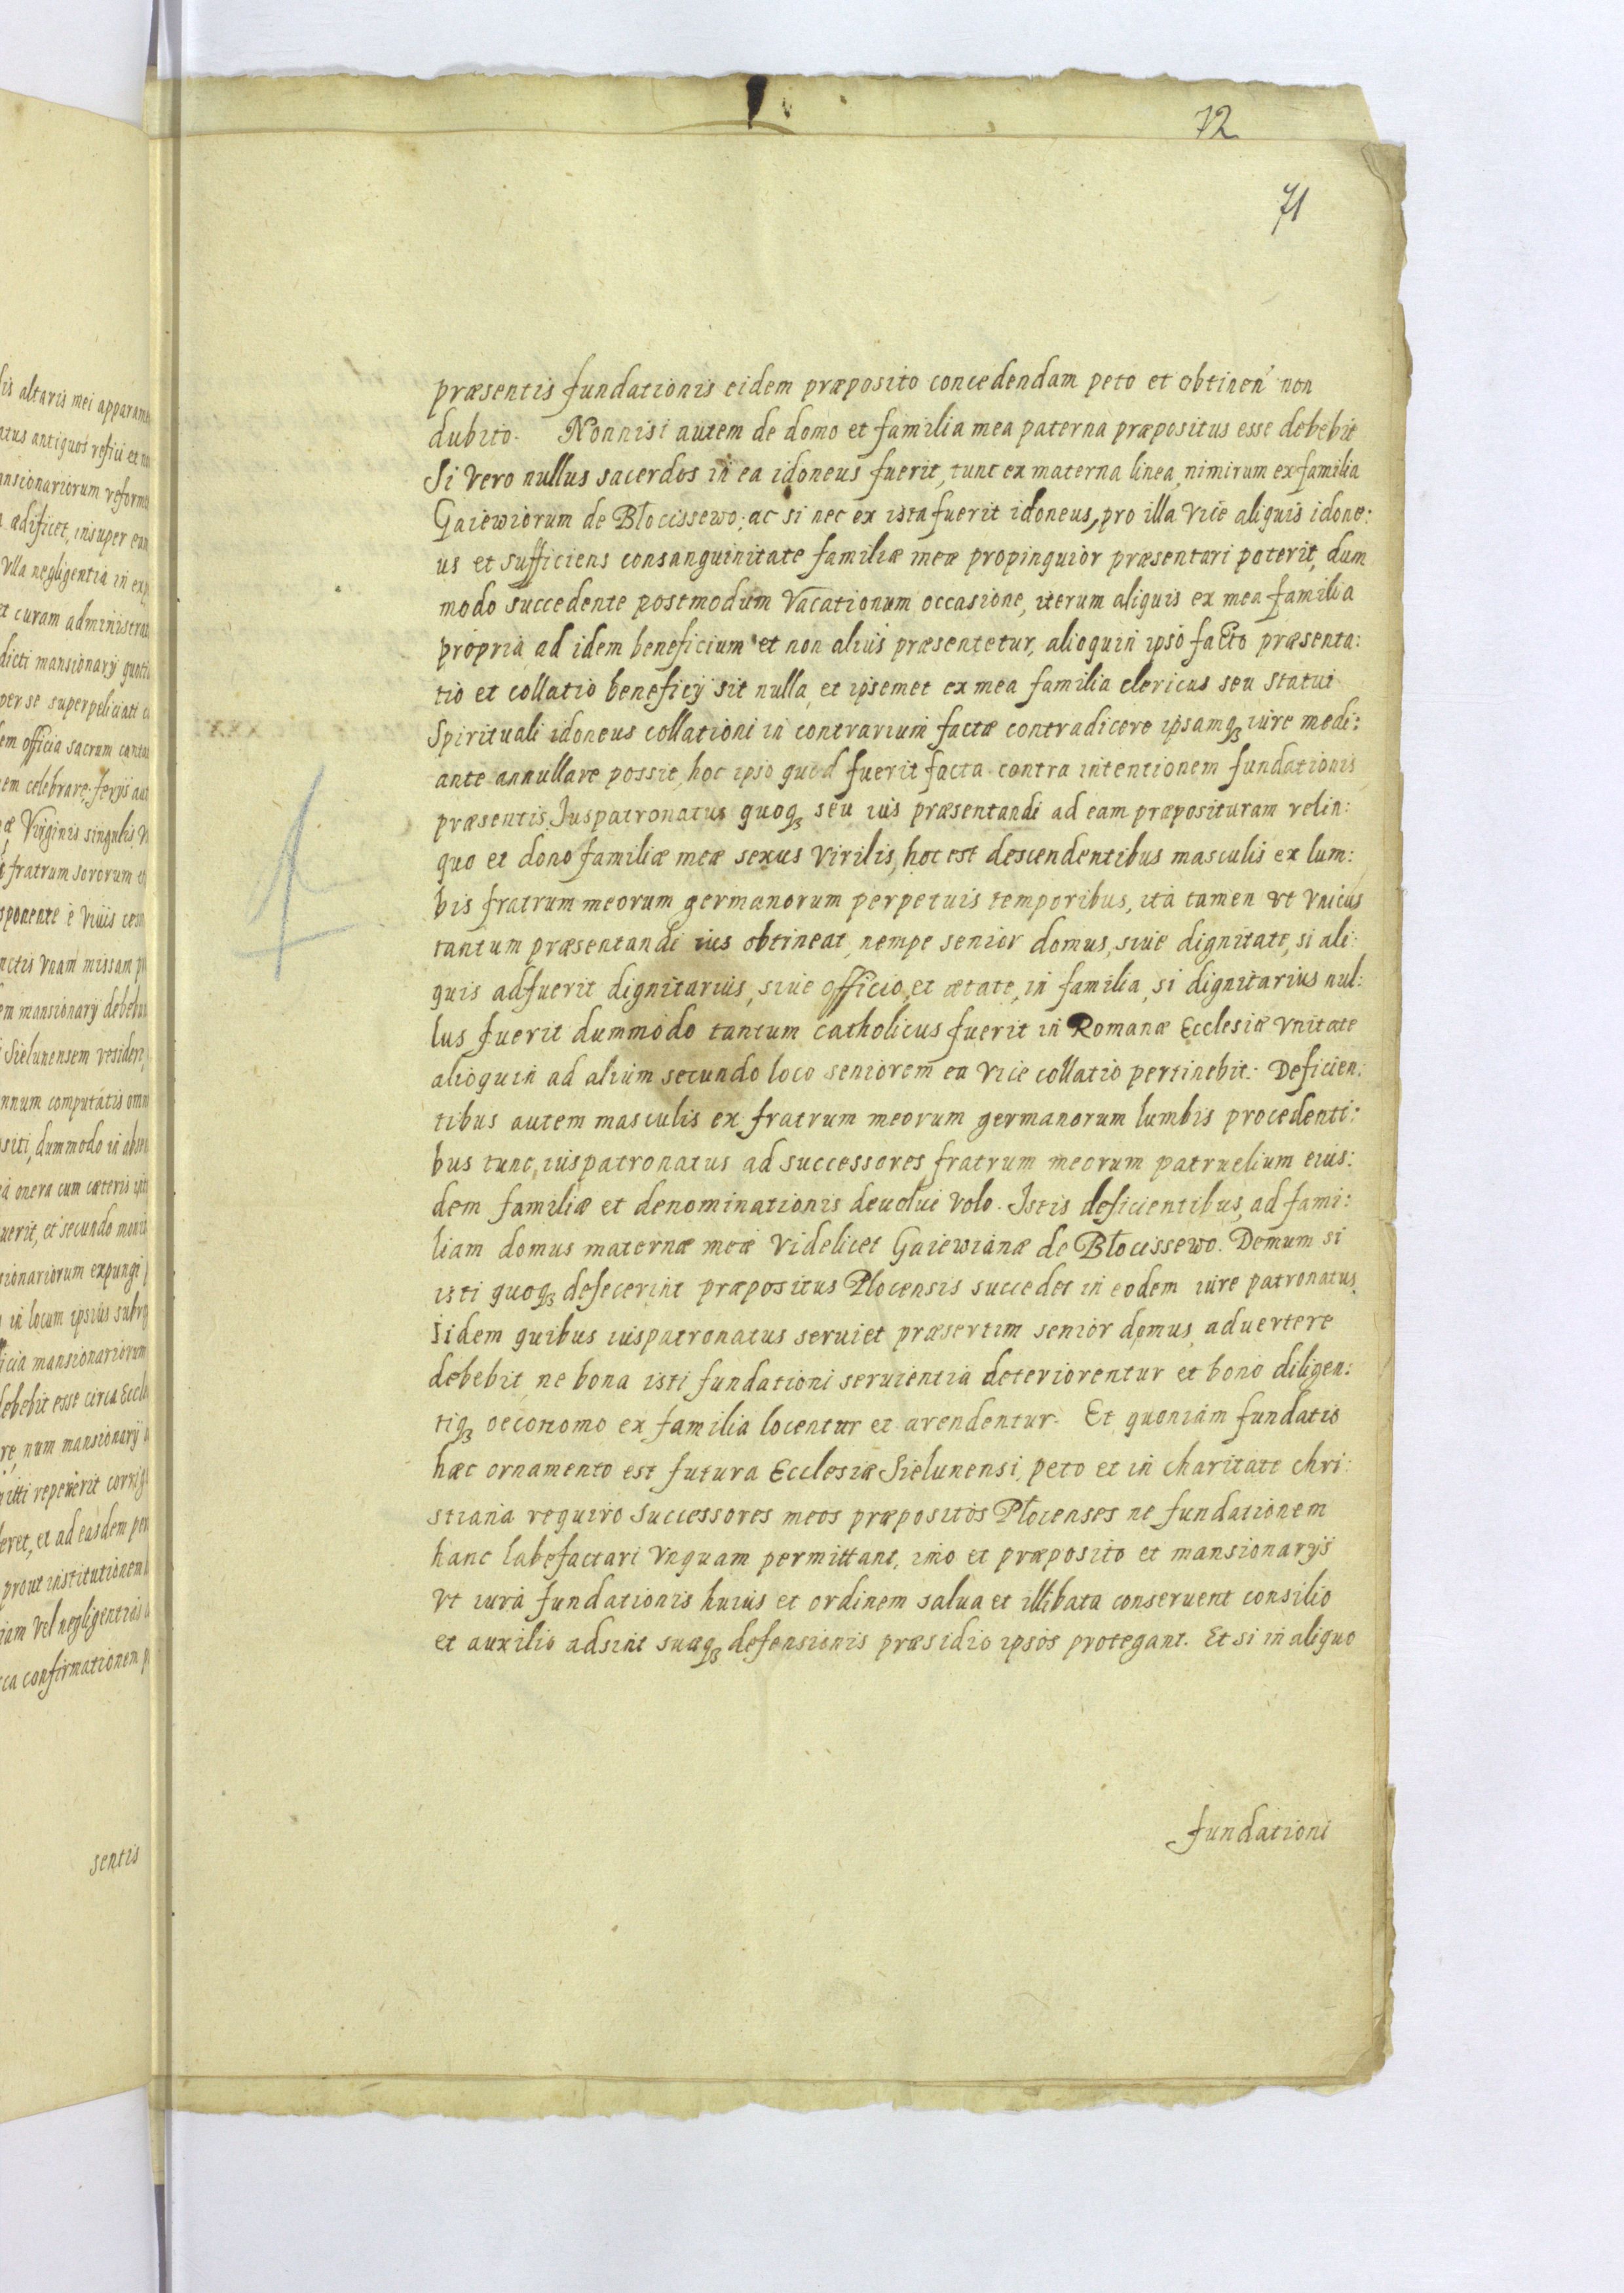 72
71
præsentis fundationis eidem præposito concedendam peto et obtinen' non
dubito. Nonnisi autem de domo et familia mea paterna præpositus esse debebit
Si vero nullus sacerdos in ea idoneus fuerit, tunc ex materna linea nimirum ex familia
Gaiewiorum de Błocissewo; ac si nec ex ista fuerit idoneus, pro illa vice aliquis idone:
us et sufficiens consanguinitate familiæ meæ propinquior præsentari poterit, dum
modo succedente postmodum vacationum occasione, iterum aliquis ex mea familia
propria ad idem beneficium et non alius præsentetur, alioquin ipso facto præsenta:
tio et collatio beneficÿ sit nulla, et ipsemet ex mea familia clericus seu statui
Spirituali idoneus collationi in contrarium factæ contradicere ipsamqꝫ iure medi:
ante annullare possit, hoc ipso quod fuerit facta contra intentionem fundationis
præsentis. Juspatronatus quoqꝫ seu ius præsentandi ad eam præposituram relin:
quo et dono familiæ meæ sexus virilis, hoc est descendentibus masculis ex lum:
bis fratrum meorum germanorum perpetuis temporibus, ita tamen vt vnicus
tantum præsentandi ius obtineat, nempe senior domus, siue dignitate, si ali:
quis adfuerit dignitarius, siue officio et ætate, in familia, si dignitarius nul:
lus fuerit dummodo tantum catholicus fuerit in Romanæ Ecclesiæ vnitate
alioquin ad alium secundo loco seniorem ea vice collatio pertinebit. Deficien:
tibus autem masculis ex fratrum meorum germanorum lumbis procedenti:
bus tunc iuspatronatus ad successores fratrum meorum patruelium eius:
dem familiæ et denominationis deuolui volo. Istis deficientibus, ad fami:
liam domus maternæ meæ videlicet Gaiewianæ de Błocissewo. Demum si
isti quoqꝫ defecerint præpositus Płocensis succedet in eodem iure patronatus.
Iidem quibus iuspatronatus seruiet præsertim senior domus aduertere
debebit ne bona isti fundationi seruientia deteriorentur et bono diligen:
tiqꝫ oeconomo ex familia locentur et arendentur. Et quoniam fundatio
hæc ornamento est futura Ecclesiæ Sielunensi, peto et in charitate chri:
stiana requiro successores meos præpositos Płocenses ne fundationem
hanc labefactari vnquam permittant, imo et præposito et mansionarÿs
vt iura fundationis huius et ordinem salua et illibata conseruent consilio
et auxilio adsint suæqꝫ defensionis præsidio ipsos protegant. Et si in aliquo
fundationi
sentis